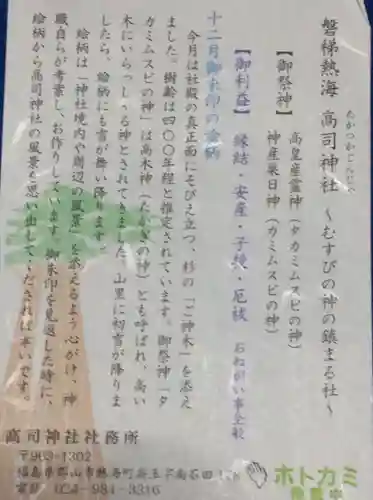 磐梯熱海 高司神社 ～むすびの神の鎮まる社～
たかつかじんじゃ
【御祭神】
高皇産霊神(タカミムスビの神)
神産巣日神(カミムスビの神)
【御利益】 縁結・安産・子授・厄祓 お祓い事全般
十二月御朱印の絵柄
今月は社殿の真正面にそびえ立つ、杉の「ご神木」を添え
ました。樹齢は四〇〇年程と推定されています。御祭神「タ
カミムスビの神」は高木神(たかぎの神)とも呼ばれ、高い
木にいらっしゃる神とされてきました。山里に初雪が降りま
したら、絵柄にも雪が舞い降ります。
絵柄は「神社境内や周辺の風景」を添えるよう心がけ、神
職自らが考案し、お作りしています。御朱印を見返した時に、
絵柄から高司神社の風景を思い出してくだされば幸いです。
高司神社社務所
〒963-1302
福島県郡山市熱海町
電話 024-984-3316
ホトカミ